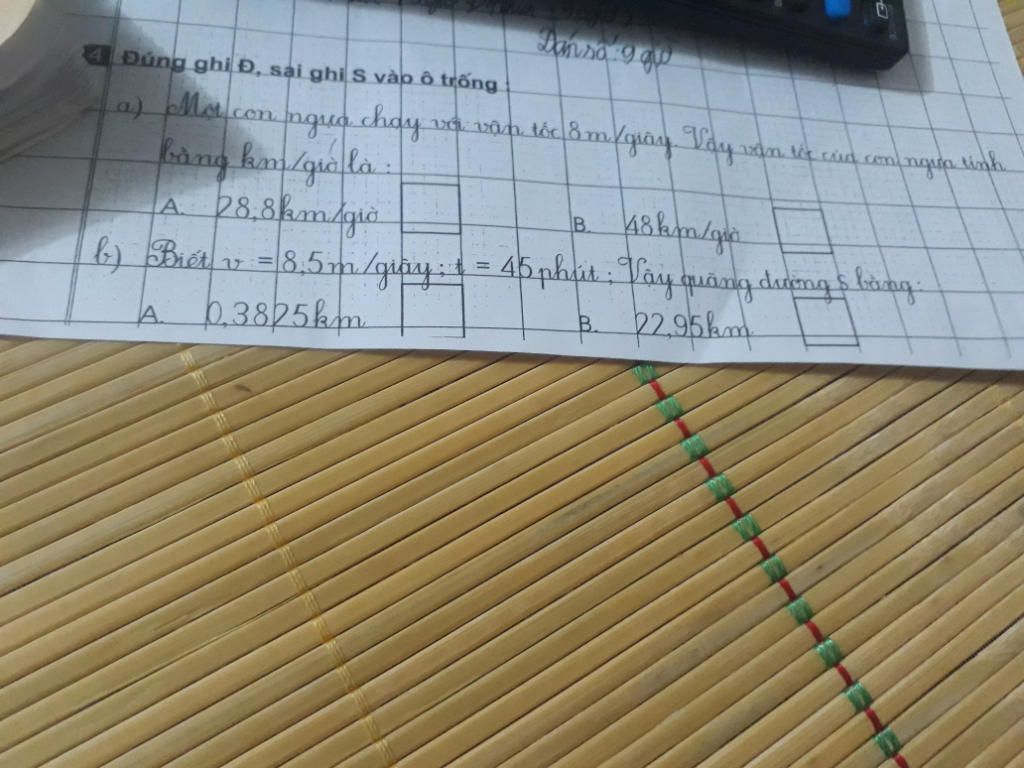 Đáp số: 9 giờ
4 Đúng ghi Đ, sai ghi S vào ô trống :
a) Một con ngựa chạy với vận tốc 8m/giây. Vậy vận tốc của con ngựa tính
bằng km/giờ là :
A. 28,8km/giờ B. 48km/giờ
b) Biết v = 8,5m/giây ; t = 45 phút ; Vậy quãng đường S bằng:
A. 0,3825km B. 22,95km